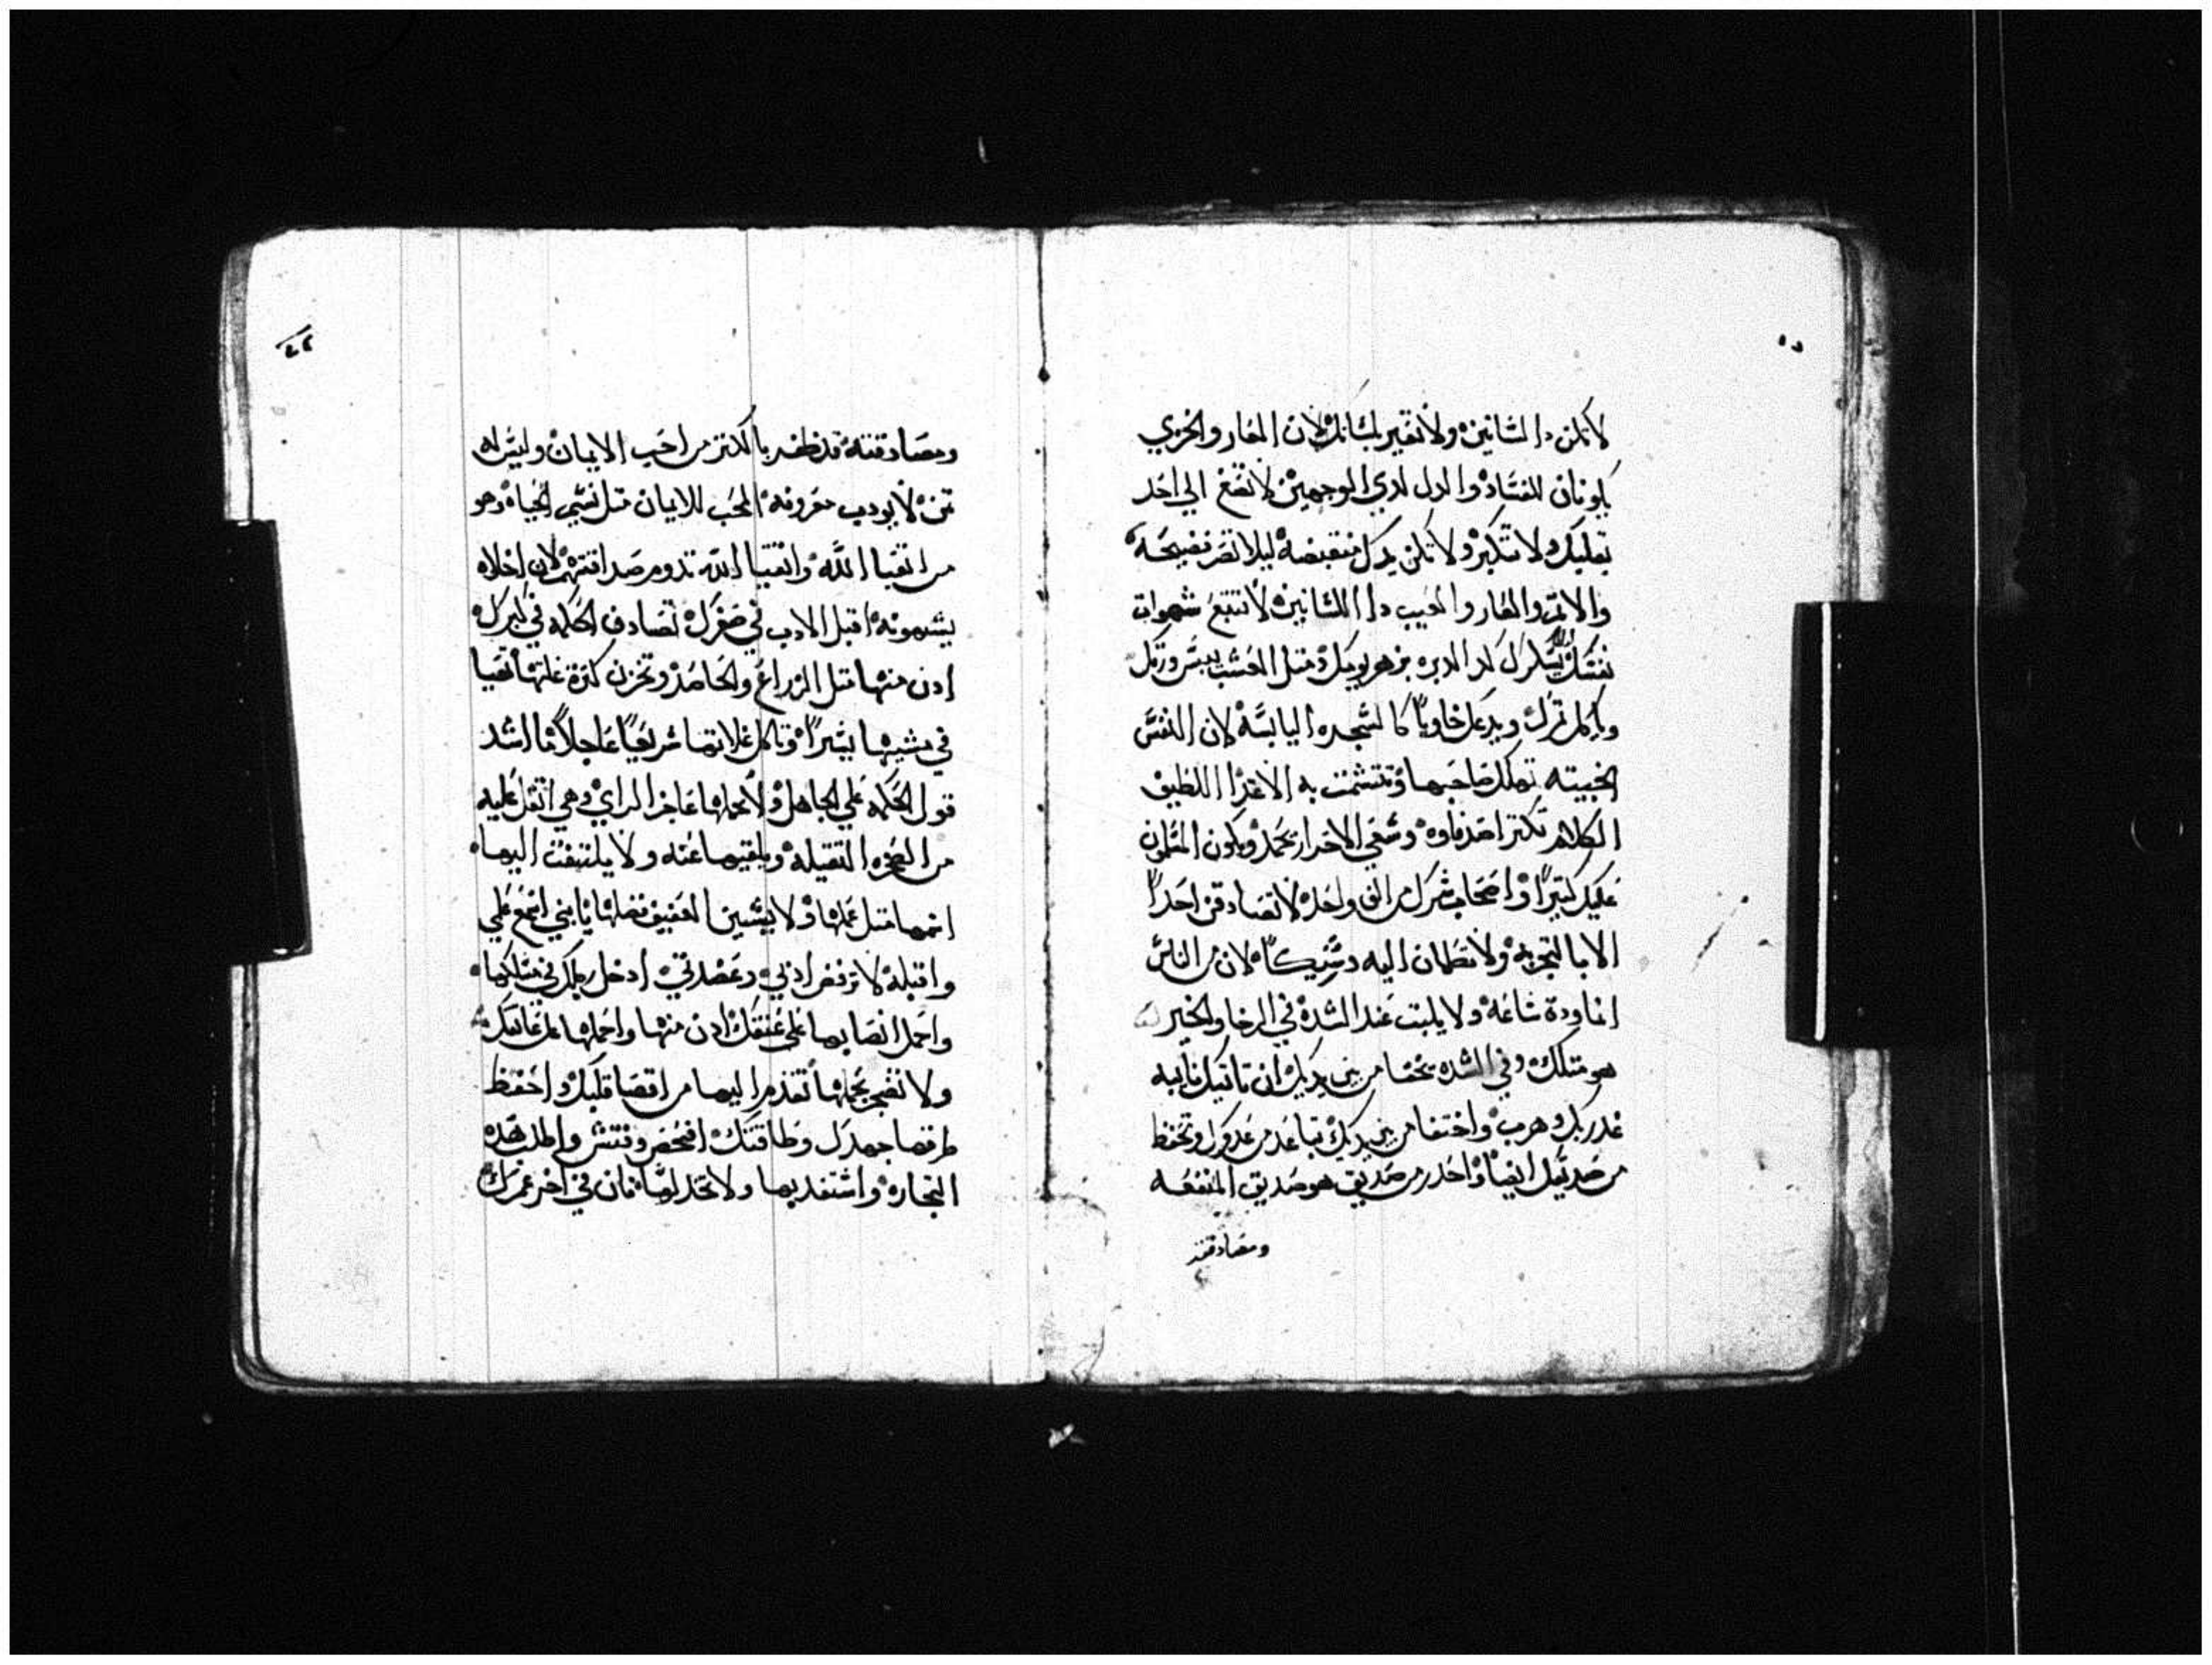 لا تكن دا لسانين ولا تقير بلسانك لان العار والخزي
يكونان للفساد والدل لدي الوجهين لا تضع الي احد
بقلبك ولا تتكبر ولا تكن يدك منقبضه ليلا تصر فضيحه
والاتم والعار والعيب دا اللسانين لا تتبع شهوات
نفسك من هو بيدك متل العشب ييبس ورقك
وياكل تمرك ويدعك خاويا كالشجره اليابسه لان النفس
الخبيته تهلك صاحبها وتشمت به الاعدا اللطيف
الكلام تكتر اصدقاوه وشفتي الاحرار تحمد ويكون المسلمون
عليك كتيرا واصحاب سرك من الف واحد لا تصادقن احدا
الا بالتجربه ولا تطمان اليه وشيكا لان من الناس
انما وده ساعه ولا يلبت عند الشده في الرخا والخير
هو متلك وفي الشده يختفا من بين يديك ان تاتيك نايبه
غدر بك وهرب واختفا من بين يديك تباعد من عدوك وتحفظ
من صديقك ايضا واحدر من صديق هو صديق المنفعه
ومصادقته
ومصادقته قد ظفر بالكنز من احب الايمان وليس له
تمن لا يوديه معروفه المحب للايمان متل نسيم الحياه وهو
من اتقيا الله واتقيا الله تدوم صداقتهم لان اخلاه
يشبهونه اقبل الادب في صغرك تصادف الحكمه في كبرك
ادن منها متل الزراع والحاصد وتخزن كترة غلتها تعيا
في مشيها يسيرا وتاكل غلاتها سريعا عاجلا ما اشد
قول الحكمه علي الجاهل ولا يحملها عاجز الراي وهي اتقل عليه
من الصخره التقيله ويلقيها عنه ولا يلتفت اليها
اسمها متل عملها ولا يستبين العفيف فضلها يا بني اسمع علي
واقبله لا ترفض ادبي وعضدتي ادخل رجلك في مسلكها
واحمل انصابها علي عنقك ادن منها واحملها علي عاتقك
ولا تضجر بحملها تقدم اليها من اقصا قلبك واحفظ
طرقها جهدك وطاقتك افحص وفتش واطلب هده
التجاره واستفد بها ولا تخد لوساه فان في اخر عمرك